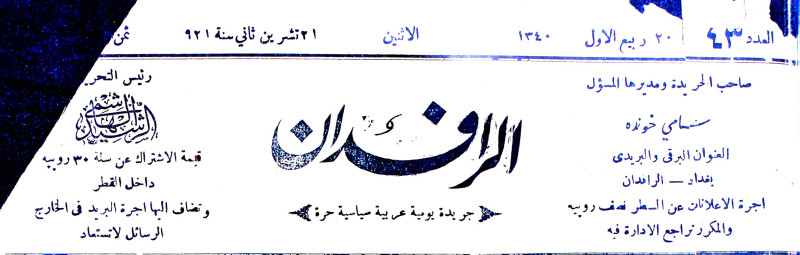 العدد ٤٣
٢٠ ربيع الاول
١٣٤٠
الاثنين
٢١ تشرين ثاني سنة ٩٢١
ثمن
صاحب الجريدة ومديرها المسؤل
سامي خونده
العنوان البرقي والبريدى
بغداد — الرافدان
اجرة الاعلانات عن السطر نصف روبيه
والمكرر تراجع الادارة فيه
الرافدان
جريدة يومية عربية سياسية حرة
رئيس التحرير
قيمة الاشتراك عن سنة ٣٠ روبيه
داخل القطر
وتضاف اليها اجرة البريد فى الخارج
الرسائل لاتستعاد